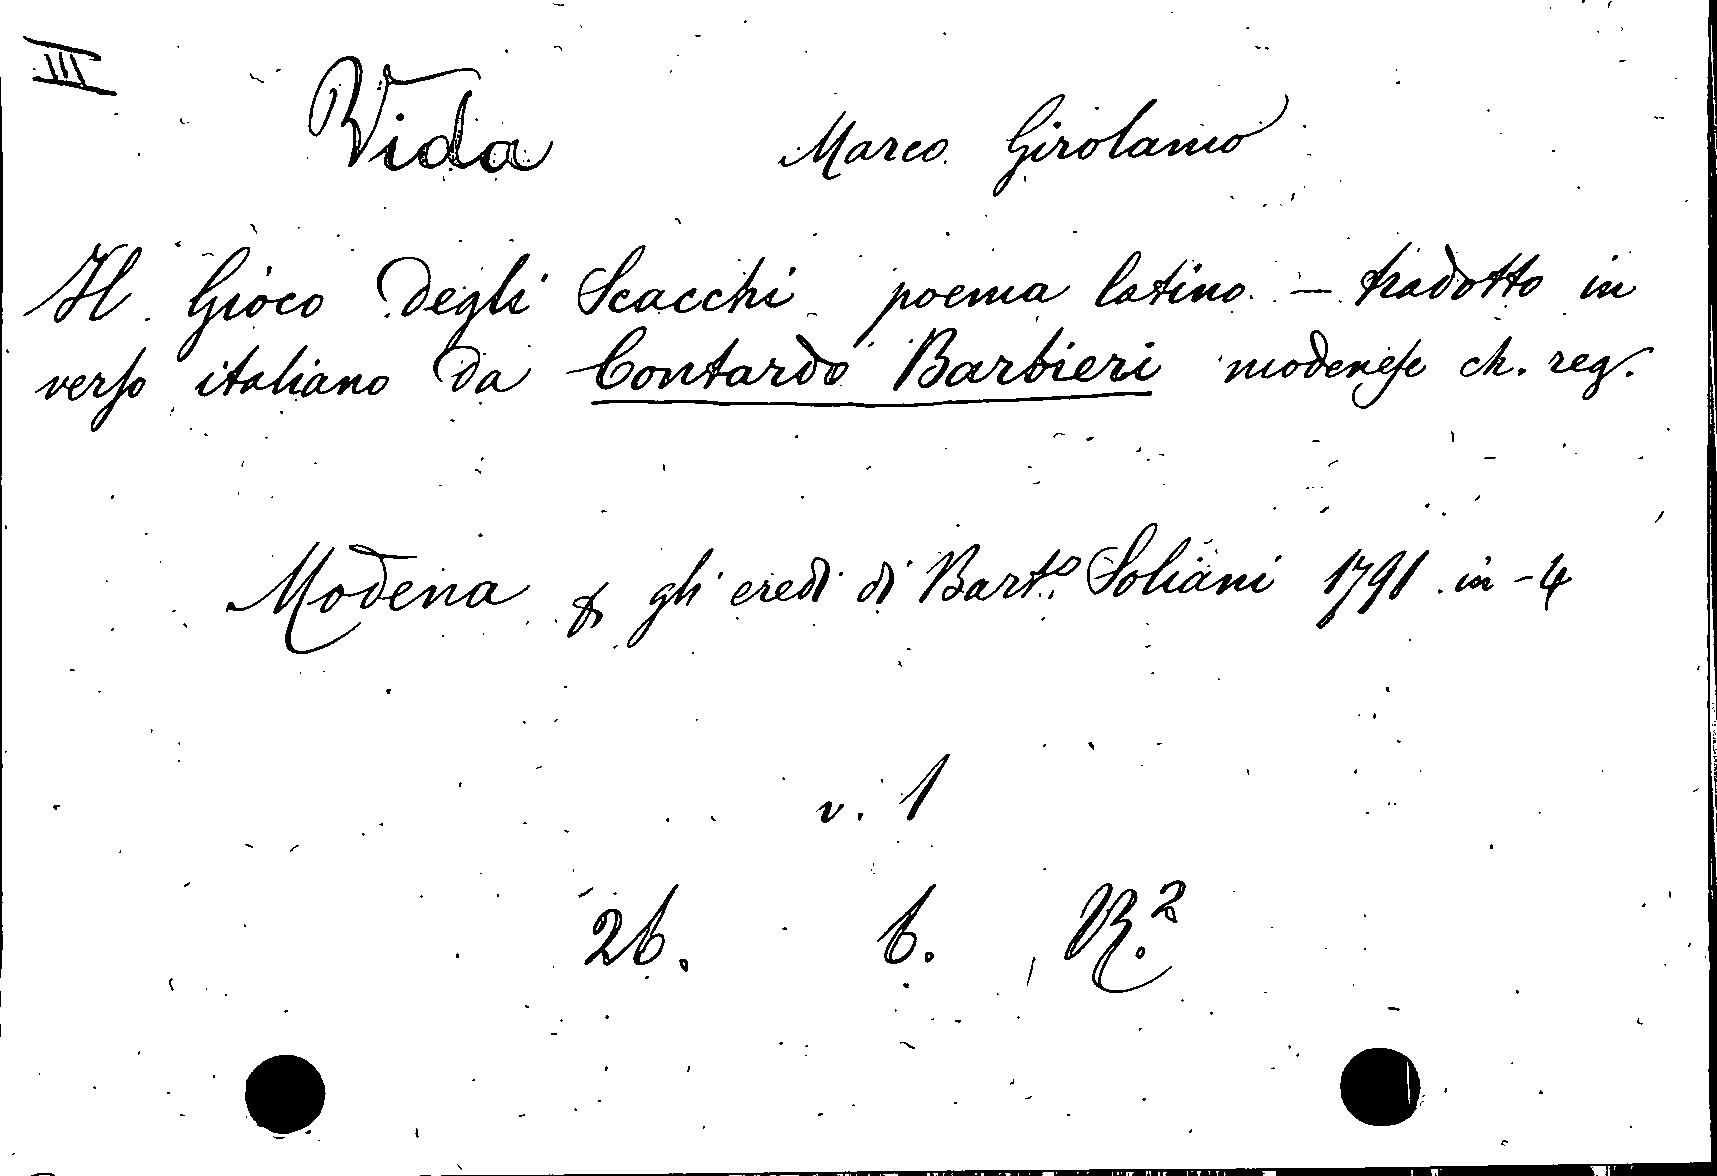 III
Vida Marco Girolamo
Il Gioco degli Scacchi poema latino – tradotto in
verso italiano da Contardo Barbieri modenese ch. reg.
Modena p gli eredi di Bart.º Soliani 1791 in-4
v. 1
26. 6. R.²